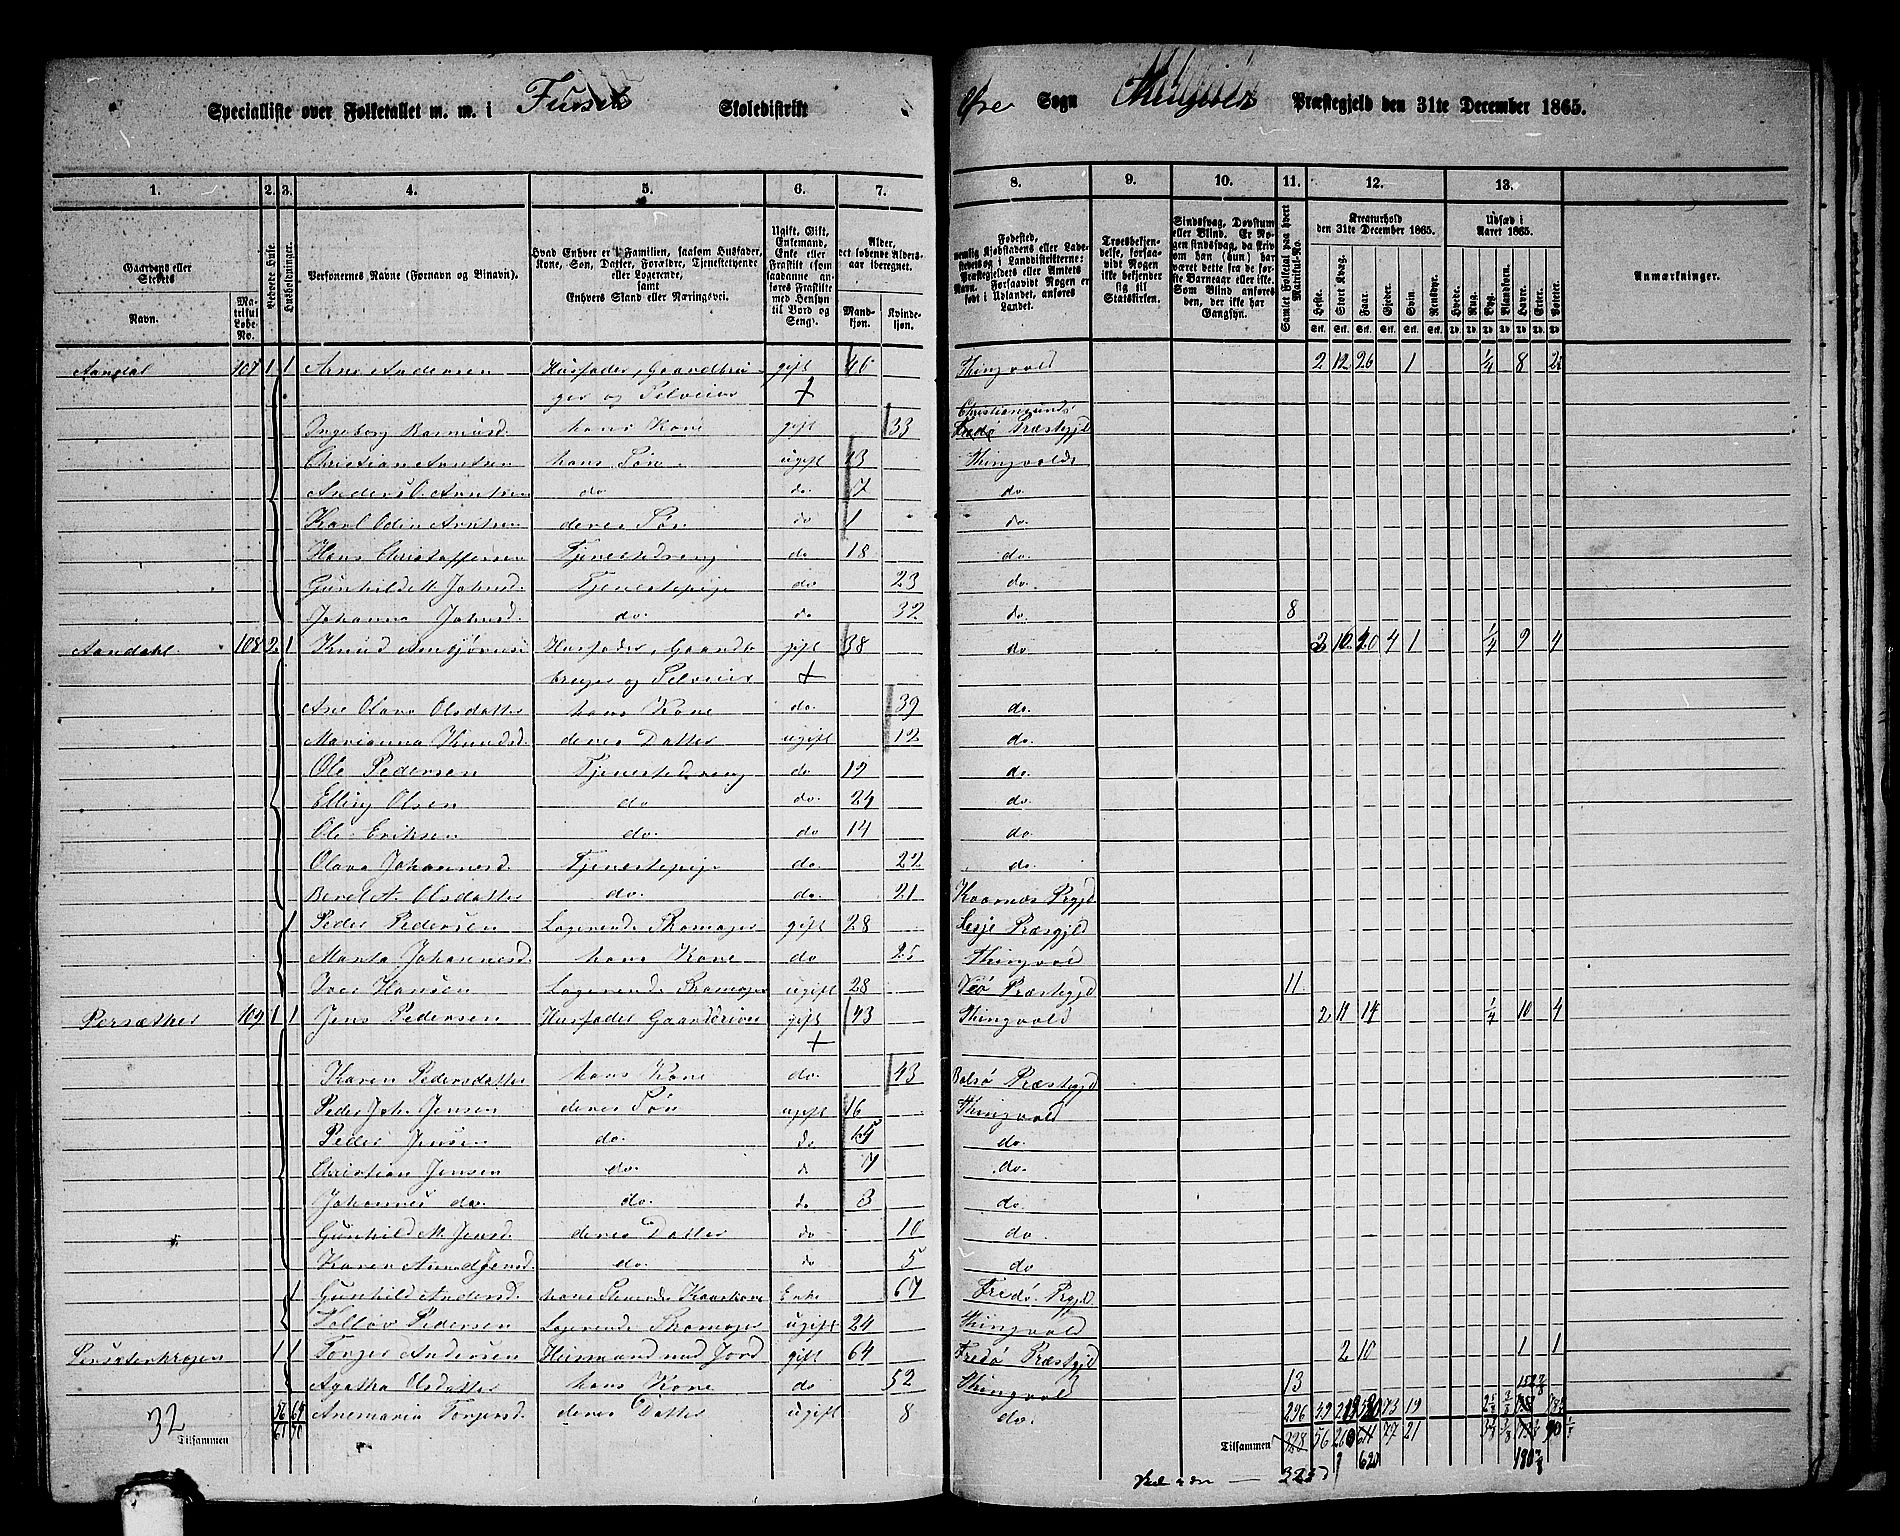 Specialliste over Folketallet m. m. i Furset Skoledistrikt Øre Sogn Thingvold Præstegjeld den 31te December 1865.
1. 2. 3. 4. 5. 6. 7. 8. 9. 10. 11. 12. 13.
Gaardens eller Stedets
Navn.
Matrikul Løbe-No.
Beboede Huse.
Husholdninger.
Personernes Navne (Fornavn og Binavn).
Hvad Enhver er i Familien, saasom Husfader, Kone, Søn, Datter, Forældre, Tjenestetyende eller Logerende, samt Enhvers Stand eller Næringsvei.
Ugift, Gift, Enkemand, Enke eller Fraskilt (som saadanne anføres Fraskilte med Hensyn til Bord og Seng).
Alder, det løbende Alders-aar iberegnet.
Mandkjøn. Kvindekjøn.
Fødested, nemlig Kjøbstadens eller Ladestedets og i Landdistrikterne: Præstegjeldets eller Amtets Navn. Forsaavidt Nogen er født i Udlandet, anføres Landet.
Troesbekjendelse, forsaavidt Nogen ikke bekjender sig til Statskirken.
Sindssvag, Døvstum eller Blind. Er Nogen sindssvag, da Privom han (hun) har været dette fra de første Barneaar eller ikke. Som Blind anføres den, der ikke har Gangsyn.
Samlet Folketal paa hvert Matrikul-No.
Kreaturhold den 31te December 1865.
Heste. Stort Kvæg. Faar. Gjeder. Svin. Rensdyr.
Udsæd i Aaret 1865.
Hvede. Rug. Byg. Blandkorn. Havre. Erter. Poteter.
Anmærkninger.
Aandal 107 1 1 Arne Andersen Husfader, Gaardbru- gift 46 Thingvold 2 12 26 1 1/4 8 2½
ger og Selveier +
Ingeborg Rasmusd. hans Kone gift 33 Christiansunds Fredø Præstgjld
Christian Arntsen hans Søn ugift 13 Thingvolds
Anders O. Arntsen do do 7 do.
Karl Odin Arntsen deres Søn do 1 do.
Hans Christoffersen Tjenestedreng do 18 do.
Gunhild M. Johnsd. Tjenestepige do 23 do.
Johanna Johnsd. do. do 32 do 8
Aandahl 108 2 1 Knud Arnbjørnsen Husfader, Gaard- gift 38 do 2 10 20 4 1 1/4 9 4
bruger og Selveier +
Ane Olava Olsdatter hans Kone do. 39 do.
Marianna Knudsd. deres Datter ugift 12 do.
Ole Pedersen Tjenestedreng do 19 do.
Elling Olsen do do. 24 do.
Ole Eriksen do. do 14 do.
Olava Johannesd. Tjenestepige do 22 do.
Beret A. Olsdatter do. do. 21 Kvernes Prgjld
1 Peder Pedersen Logerende Skomager gift 28 Lesje Præsgjld
Marta Johannesd. hans Kone do 25 Thingvold
Iver Hansen Logerende Skomager ugift 28 Veø Præstegjd 11
Persæther 109 1 1 Jens Pedersen Husfader Gaardeier gift 43 Thingvold 2 11 14 1/4 10 4
+
Karen Pedersdatter hans Kone do. 43 Bolsø Præstgjd
Peder Joh. Jensen deres Søn ugift 16 Thingvold
Peder Jensen do. do 15 do.
Christian Jensen do. do 7 do.
Johannes do. do. do 3 do.
Gunhild M. Jensd. deres Datter do 10 do.
Karen Arnadjensd. do. do 5 do
1 Gunhild Andersd. Enke 67 Fredø. Prgjld.
Tollov Pedersen Logerende Skomager ugift 24 Thingvold
Persæterkragen 1 1 Torger Andersen Huusmand med Jord gift 64 Fredø Præstgjd 2 10 1 1
Agatha Olsdatter hans Kone do 52 Thingvold 13
Anemaria Torgersd. deres Datter ugift 8 do.
32 Tilsammen
296 19
Tilsammen 328 56 260 614 77 21
620